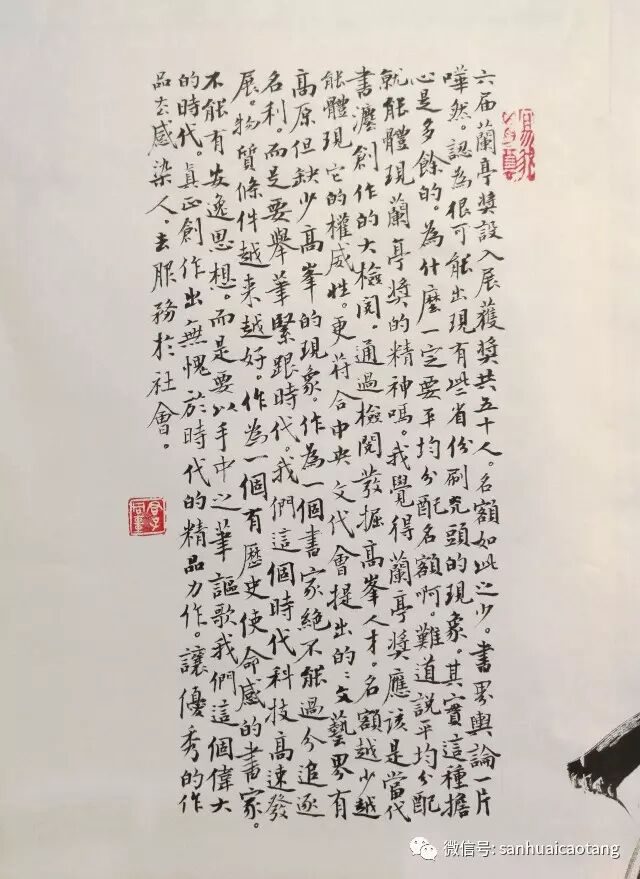 六届蘭亭獎設入展獲獎共五十人。名額如此之少。書界輿論一片
嘩然。認為很可能出現有些省份刷禿頭的現象。其實這種擔
心是多餘的。為什麼一定要平均分配名額啊。難道説平均分配
就能體現蘭亭獎的精神嗎。我覺得蘭亭獎應该是當代
書灋創作的大檢閱。通過檢閱發掘高峯人才。名額越少越
能體現它的權威性。更符合中央文代會提出的：文藝界有
高原但缺少高峯的現象。作為一個書家絕不能過分追逐
名利。而是要舉筆緊跟時代。我們這個時代科技高速發
展。物質條件越来越好。作為一個有歷史使命感的書家。
不能有安逸思想。而是要以手中之筆謳歌我們這個偉大
的時代。真正創作出無愧於時代的精品力作。讓優秀的作
品去感染人。去服務於社會。
微信号: sanhuaicaotang